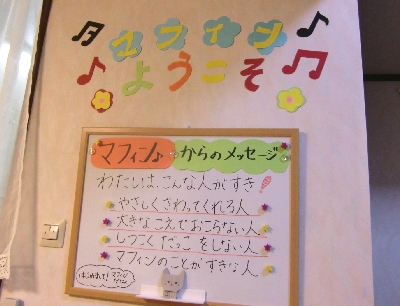 ♫マフィン♪
♪ようこそ♫
マフィン♪からのメッセージ
わたしは、こんな人がすき!
やさしくさわってくれる人
大きなこえでおこらない人
しつこくだっこをしない人
マフィンのことがすきな人